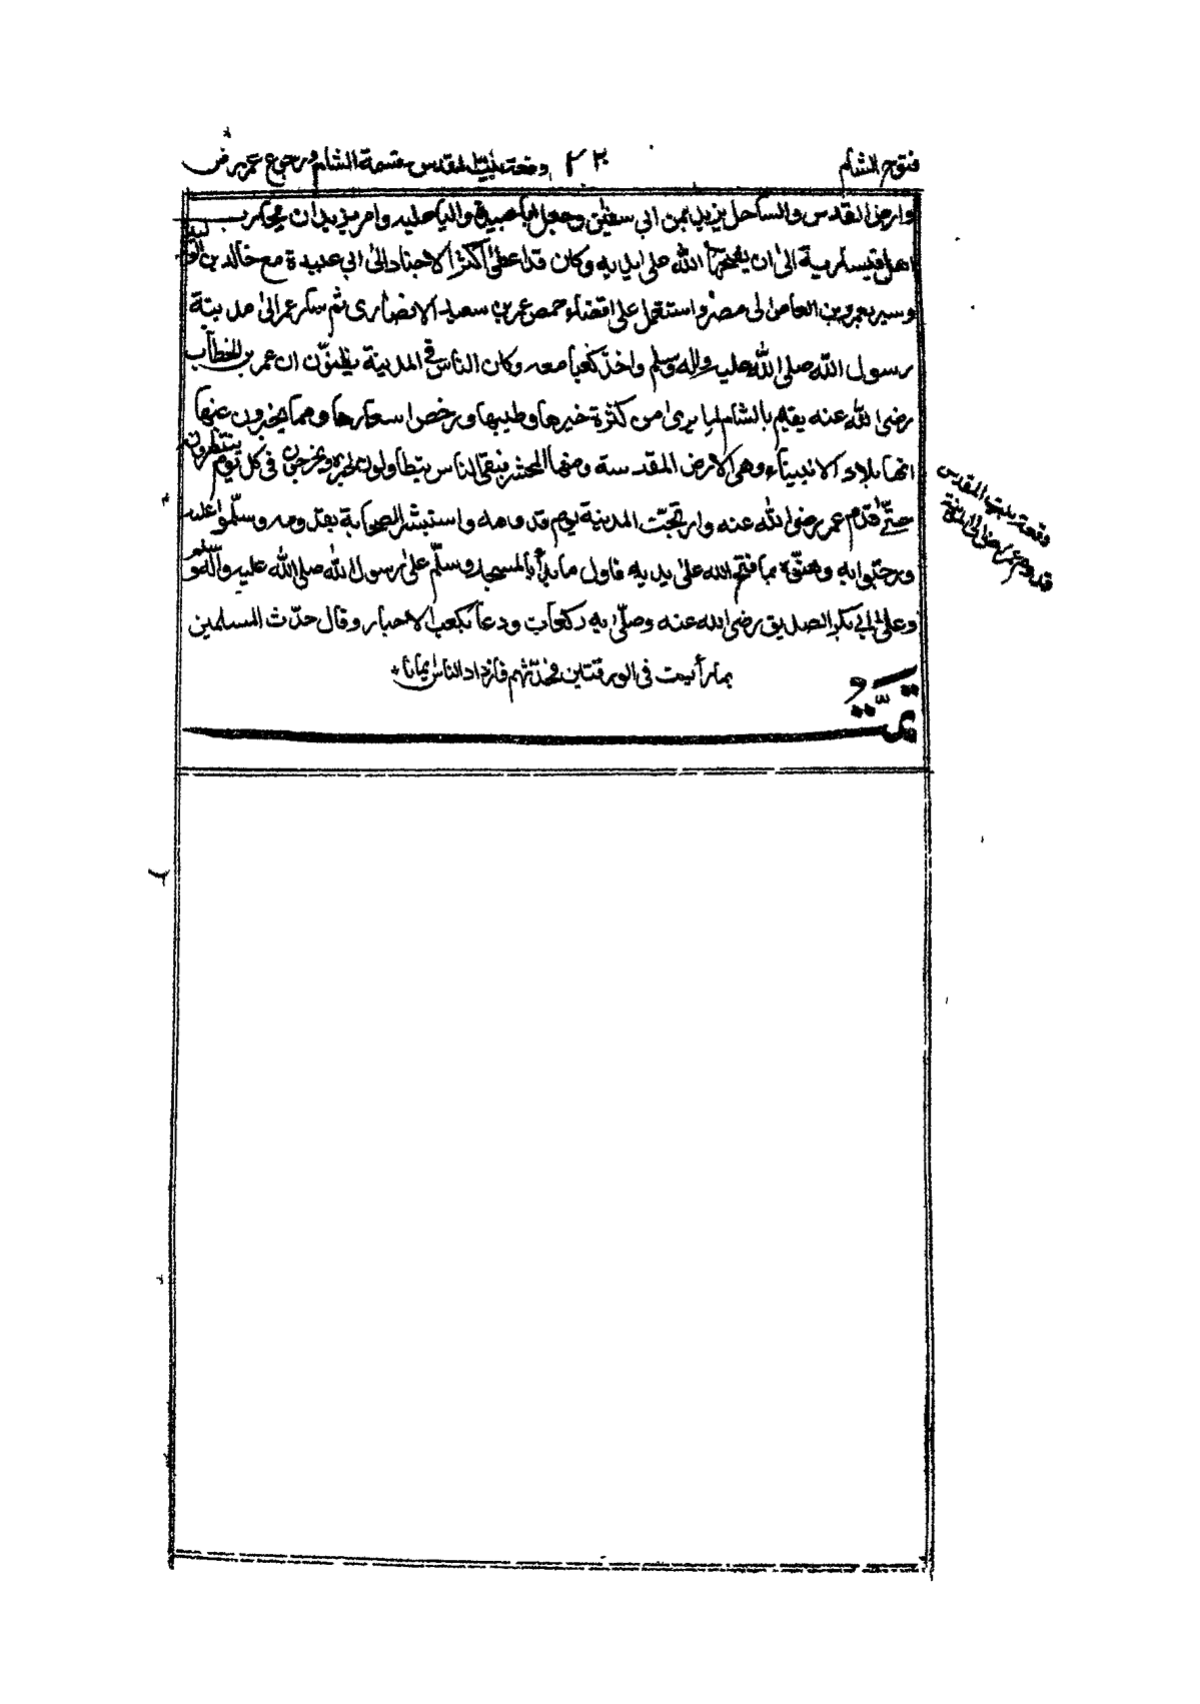 فتوح الشام
وقعة بيت المقدس قسمة الشام ورجوع عمر رض
وارض القدس والساحل يزيد بن ابي سفين وجعل ابا عبيدة واليا عليه وامر يزيد ان يحارب
اهل قيسارية الى ان يفتحها الله على يديه وكان قد اعطى اكثر الاجناد الى ابي عبيدة مع خالد بن الوليد
وسير عمرو بن العاص الى مصر واستعمل على اقضاء حمص عمر بن سعيد الانصارى ثم سار عمر الى مدينة
رسول الله صلى الله عليه واله وسلم واخذ كعبا معه وكان الناس فى المدينة يظنون ان عمر بن الخطاب
رضى الله عنه يقيم بالشام لما يرى من كثرة خيرها وطيبها ورخص اسعارها ومما يخبرون عنها
انها بلاد الانبياء وهى الارض المقدسة ومنها المحشر فبقى الناس يتطاولون لخبره ويخرجون فى كل يوم ينتظرون
حتى قدم عمر رضى الله عنه وارتجت المدينة يوم قدومه واستبشر الصحابة بقدومه وسلموا عليه
ورحبوا به وهنوه بما فتح الله على يديه فاول ما بدأ بالمسجد وسلم على رسول الله صلى الله عليه وآله وسلم
وعلى ابي بكر الصديق رضى الله عنه وصلى به ركعات ودعا بكعب الاحبار وقال حدث المسلمين
بما رأيت فى الورقتين فحدثهم فازداد الناس ايمانا
وقعة بيت المقدس
قدوم عمر رض الى المدينة
تمت